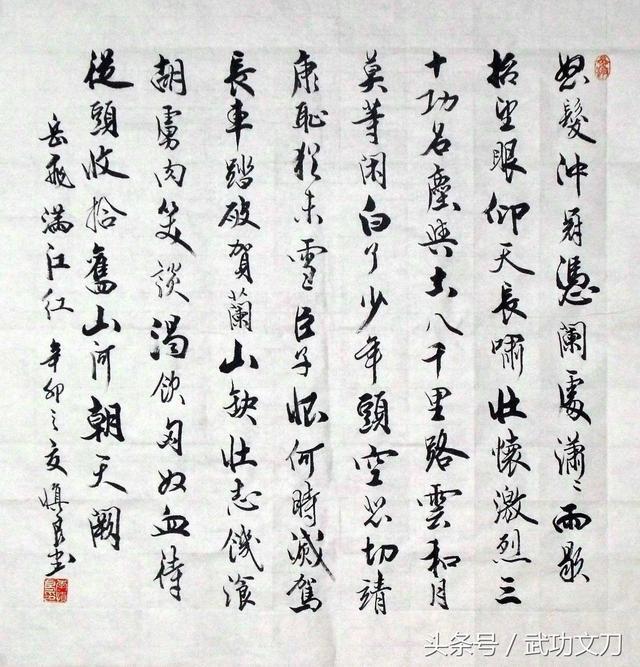 怒髮沖冠憑闌處瀟々雨歇
抬望眼仰天長嘯壯懷激烈三
十功名塵與土八千里路雲和月
莫等闲白了少年頭空悲切靖
康恥猶未雪臣子恨何時滅駕
長車踏破賀蘭山缺壯志饑飡
胡虜肉笑談渴飲匈奴血待
從頭收拾舊山河朝天闕
岳飛滿江紅 辛卯之夏 慎良书
头条号 / 武功文刀